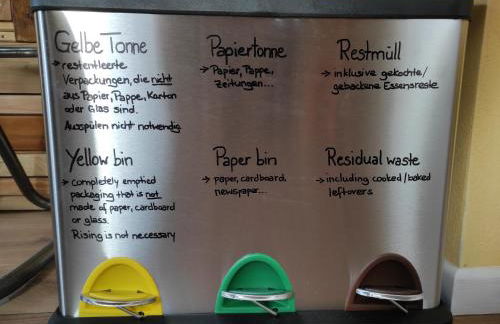 Gelbe Tonne
→ restentleerte
Verpackungen, die nicht
aus Papier, Pappe, Karton
oder Glas sind.
Ausspülen nicht notwendig
Papiertonne
→ Papier, Pappe,
Zeitungen...
Restmüll
→ inklusive gekochte/
gebackene Essensreste
Yellow bin
→ completely emptied
packaging that is not
made of paper, cardboard
or glass.
Rising is not necessary
Paper bin
→ paper, cardboard,
newspaper...
Residual waste
→ including cooked/baked
leftovers